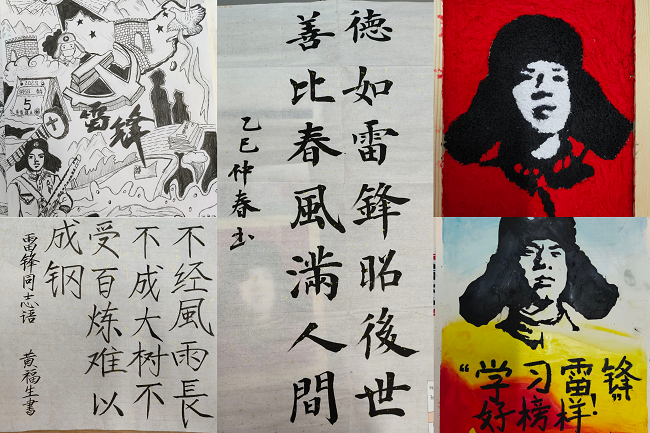 5
雷锋
德如雷鋒昭後世
善比春風滿人間
乙巳仲春书
不经風雨長
不成大树不
受百炼难以
成钢
雷锋同志语 黄福生書
“学习雷锋”
好榜样!